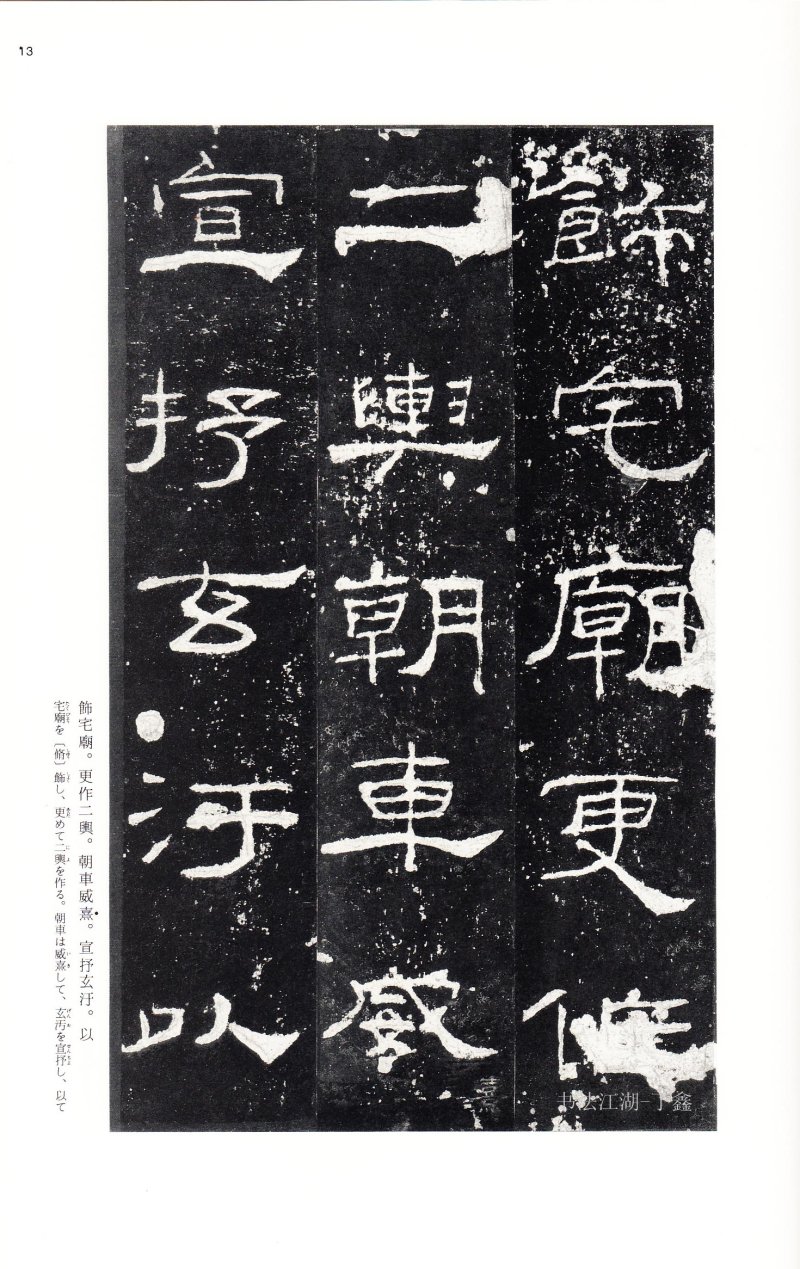 13
飾宅廟更作
二輿朝車威熹
宣抒玄汙以
飾宅廟。更作二輿。朝車威熹。宣抒玄汙。以
宅廟を〔脩〕飾し、更めて二輿を作る。朝車は威熹して、玄汚を宣抒し、以て
书法江湖-丁鑫